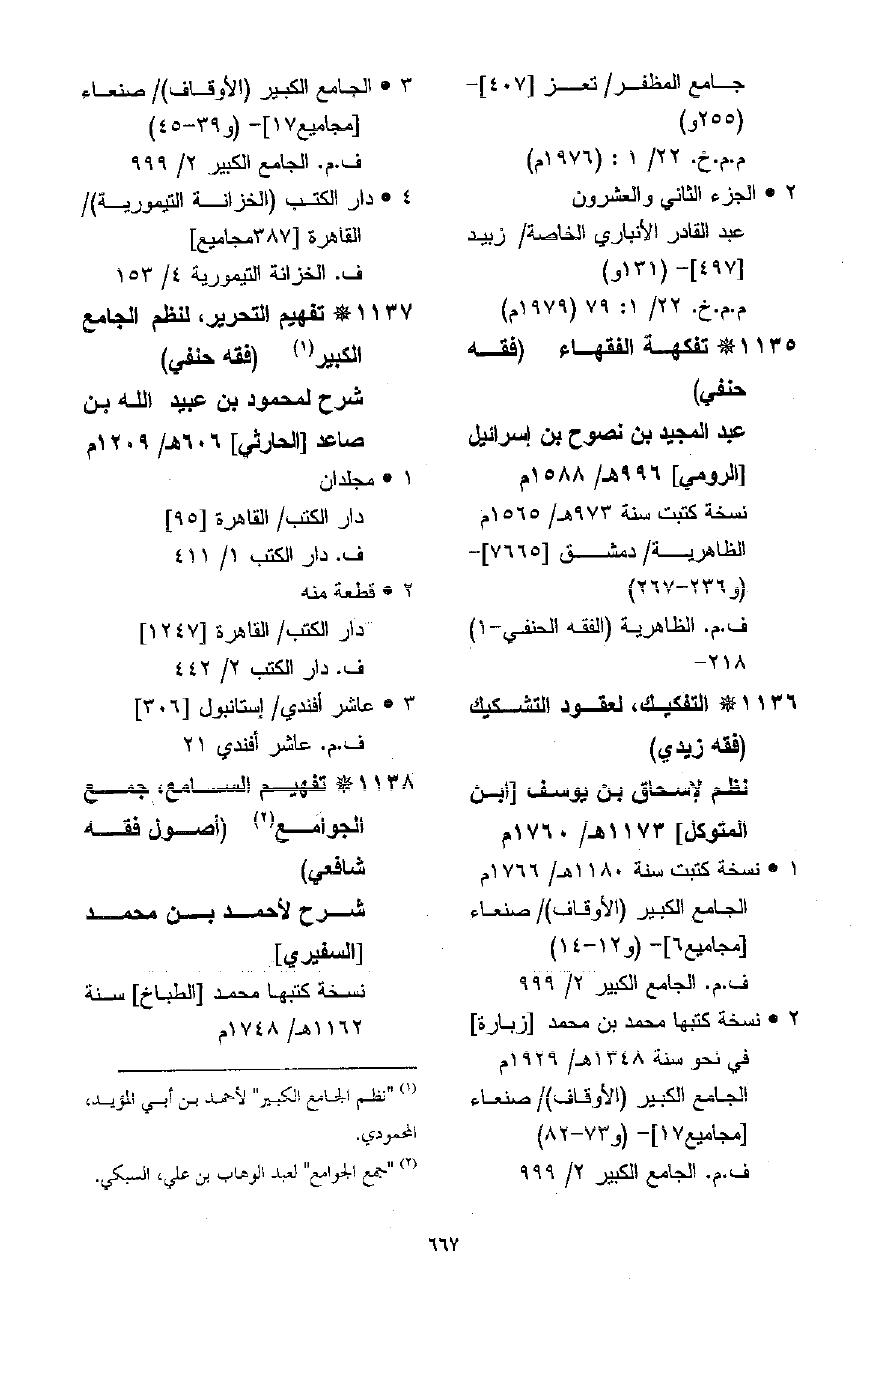 جامع المظفر/ تعز [٤٠٧]-
(٢٥٥و)
م.م.خ. ٢٢/ ١ : (١٩٧٦م)
٢ • الجزء الثاني والعشرون
عبد القادر الأنباري الخاصة/ زبيد
[٤٩٧]- (١٣١و)
م.م.خ. ٢٢/ ١: ٧٩ (١٩٧٩م)
١١٣٥* تفكهة الفقهاء (فقه
حنفي)
عبد المجيد بن نصوح بن إسرائيل
[الرومي] ٩٩٦هـ/ ١٥٨٨م
نسخة كتبت سنة ٩٧٣هـ/ ١٥٦٥م
الظاهرية/ دمشق [٧٦٦٥]-
(و٢٣٦-٢٦٧)
ف.م. الظاهرية (الفقه الحنفي-١)
٢١٨-
١١٣٦* التفكيك، لعقود التشكيك
(فقه زيدي)
نظم لإسحاق بن يوسف [ابن
المتوكل] ١١٧٣هـ/ ١٧٦٠م
١ • نسخة كتبت سنة ١١٨٠هـ/ ١٧٦٦م
الجامع الكبير (الأوقاف)/ صنعاء
[مجاميع٦]- (و١٢-١٤)
ف.م. الجامع الكبير ٢/ ٩٩٩
٢ • نسخة كتبها محمد بن محمد [زبارة]
في نحو سنة ١٣٤٨هـ/ ١٩٢٩م
الجامع الكبير (الأوقاف)/ صنعاء
[مجاميع١٧]- (و٧٣-٨٢)
ف.م. الجامع الكبير ٢/ ٩٩٩
٣ • الجامع الكبير (الأوقاف)/ صنعاء
[مجاميع١٧]- (و٣٩-٤٥)
ف.م. الجامع الكبير ٢/ ٩٩٩
٤ • دار الكتب (الخزانة التيمورية)/
القاهرة [٣٨٧مجاميع]
ف. الخزانة التيمورية ٤/ ١٥٣
١١٣٧* تفهيم التحرير، لنظم الجامع
الكبير(١) (فقه حنفي)
شرح لمحمود بن عبيد الله بن
صاعد [الحارثي] ٦٠٦هـ/ ١٢٠٩م
١ • مجلدان
دار الكتب/ القاهرة [٩٥]
ف. دار الكتب ١/ ٤١١
٢ • قطعة منه
دار الكتب/ القاهرة [١٢٤٧]
ف. دار الكتب ٢/ ٤٤٢
٣ • عاشر أفندي/ إستانبول [٣٠٦]
ف.م. عاشر أفندي ٢١
١١٣٨* تفهيم السامع، جمع
الجوامع(٢) (أصول فقه
شافعي)
شرح لأحمد بن محمد
[السفيري]
نسخة كتبها محمد [الطباخ] سنة
١١٦٢هـ/ ١٧٤٨م
(١) "نظم الجامع الكبير" لأحمد بن أبي المؤيد،
المحمودي.
(٢) "جمع الجوامع" لعبد الوهاب بن علي، السبكي.
٦٦٧